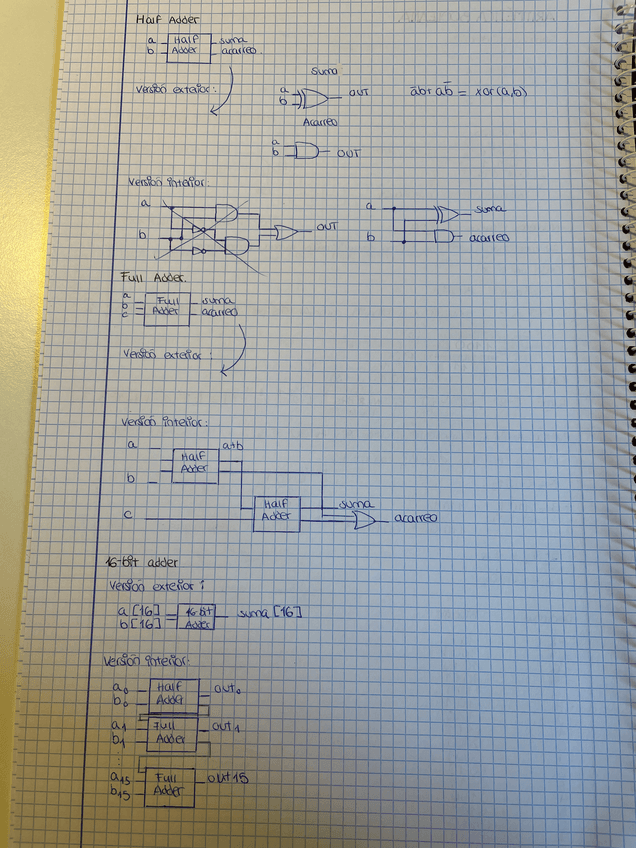 Half Adder
a Half suma
b Adder acarreo
Suma
Versión exterior:
a OUT āb+ab̄ = xor(a,b)
b
Acarreo
a
b OUT
Versión interior:
a a suma
OUT
b b acarreo
Full Adder.
a Full suma
b Adder acarreo
c
Versión exterior:
Versión interior:
a a+b
Half
Adder
b
Half suma
c Adder acarreo
16-bit adder
Versión exterior:
a [16] 16-bit suma [16]
b [16] Adder
Versión interior:
a0 Half out0
b0 Adder
a1 Full out1
b1 Adder
⋮
a15 Full out15
b15 Adder